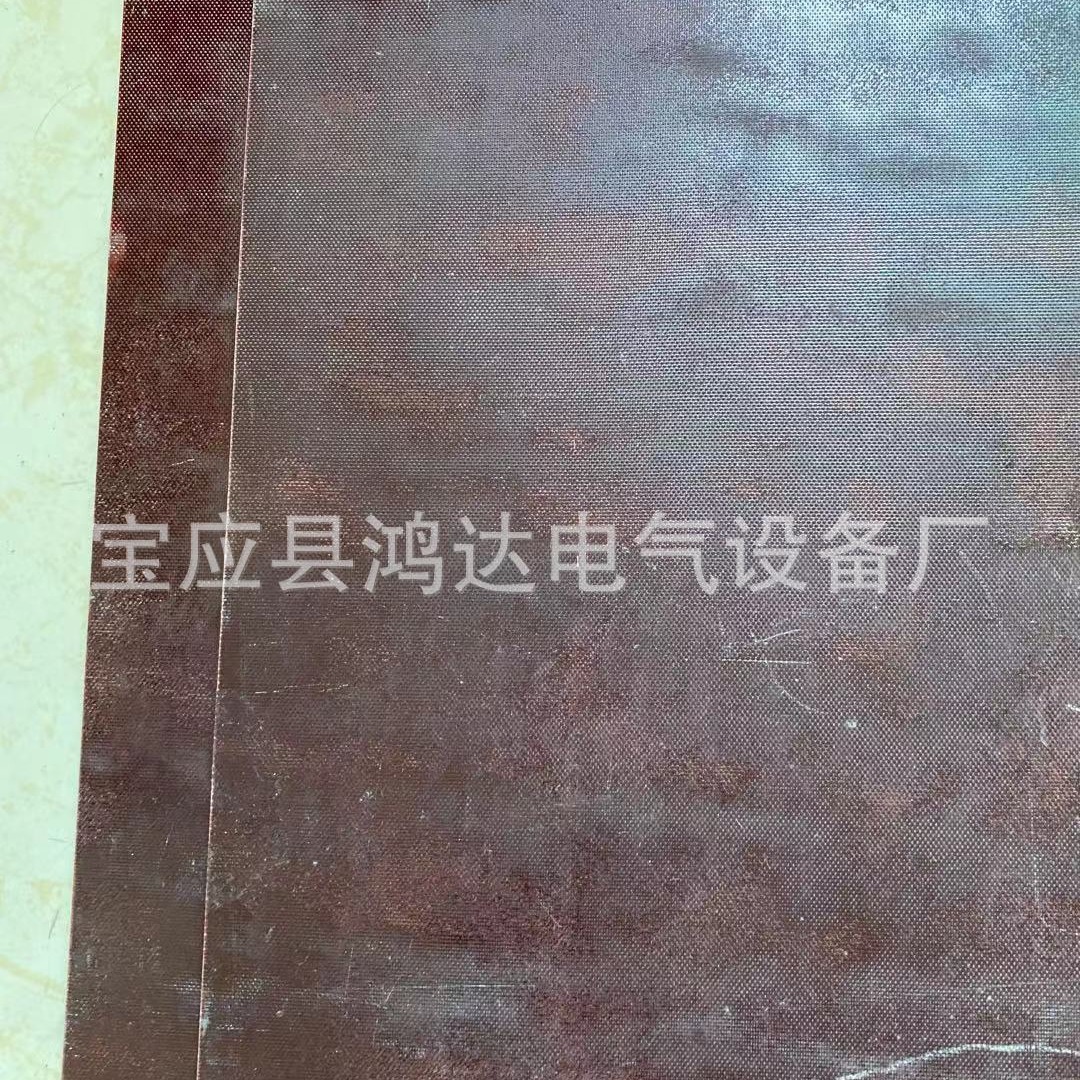 宝应县鸿达电气设备厂